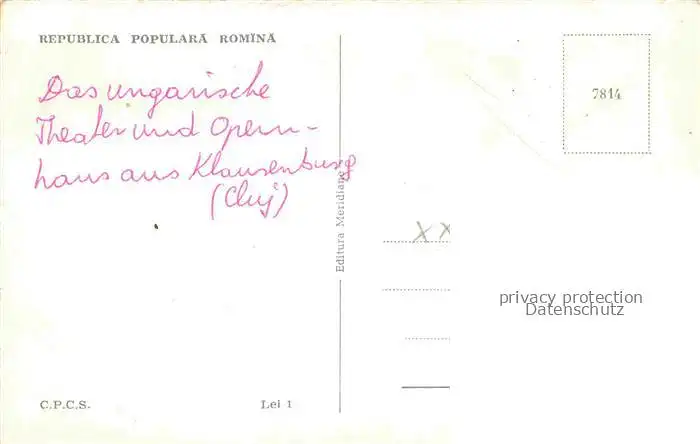 REPUBLICA POPULARĂ ROMÎNĂ
Das ungarische
Theater und Opern-
haus aus Klausenburg
(Cluj)
Editura Meridiane
7814
XX
privacy protection
Datenschutz
C.P.C.S.
Lei 1